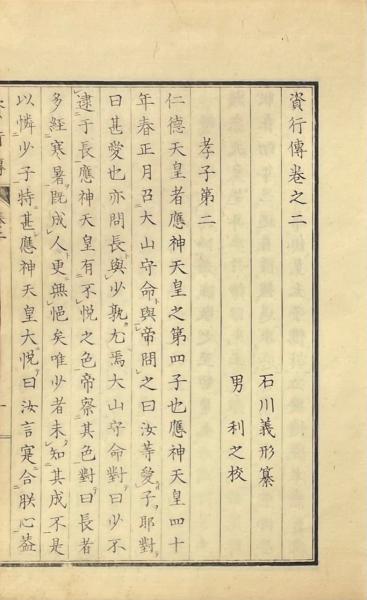 資行傳卷之二
石川義形纂
男利之校
孝子第二
仁德天皇者應神天皇之第四子也應神天皇四十
年春正月召大山守命與帝問之曰汝等愛子耶對
曰甚愛也亦問長與少孰尤焉大山守命對曰少不
逮于長應神天皇有不悅之色帝察其色對曰長者
多經寒暑旣成人更無悒矣唯少者未知其成不是
以憐少子特甚應神天皇大悅曰汝言寔合朕心益